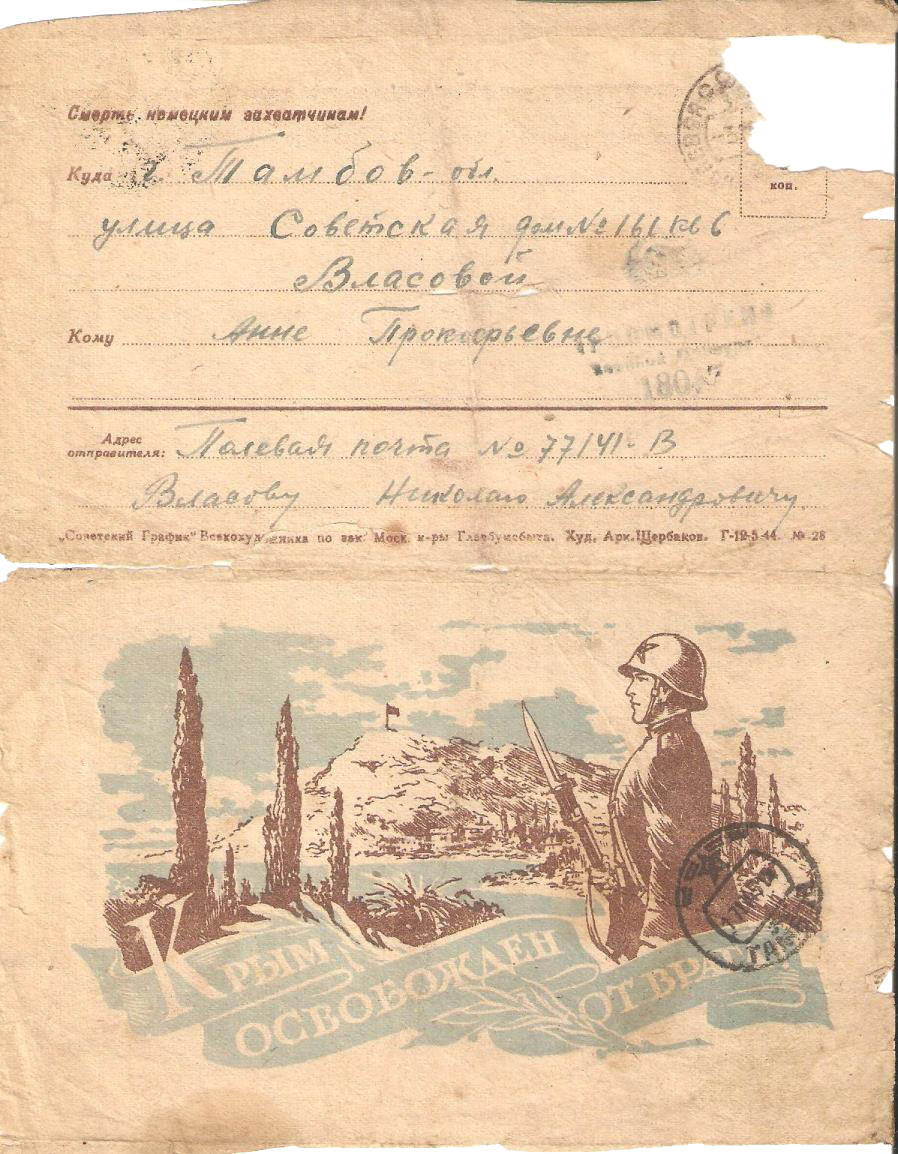 Смерть немецким захватчикам!
Куда г. Тамбов - обл.
улица Советская дом № 161 кв 6
Власовой
Кому Анне Прокофьевне
коп.
Просмотрено
Военной Цензурой
Адрес
отправителя: Полевая почта № 77141-В
Власову Николаю Александровичу
„Советский График" Всекохудожника по зак. Моск. к-ры Главбумсбыта. Худ. Арк. Щербаков. Г-19-5-44. № 28
КРЫМ
ОСВОБОЖДЕН
ОТ ВРАГА!